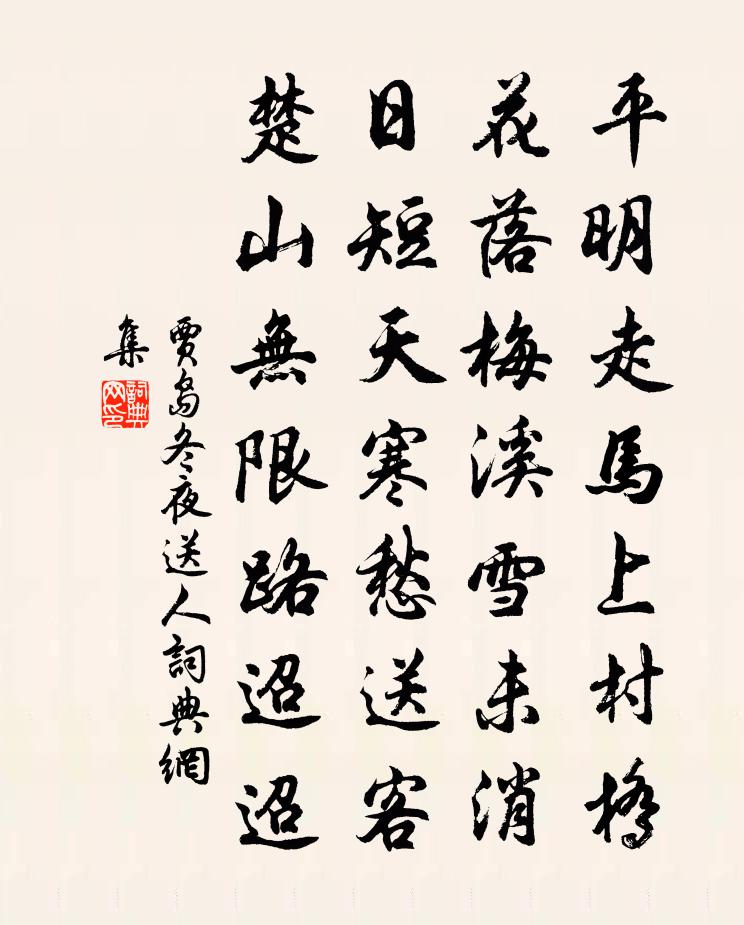 平明走馬上村橋
花落梅溪雪未消
日短天寒愁送客
楚山無限路迢迢
賈島冬夜送人詞典網
集
詞典
网印